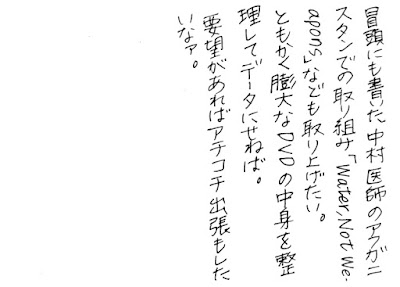 冒頭にも書いた、中村医師のアフガニ
スタンでの取り組み「Water, Not We-
apons」なども取り上げたい。
ともかく膨大なDVDの中身を整
理してデータにせねば。
要望があればアチコチ出張もした
いなァ。